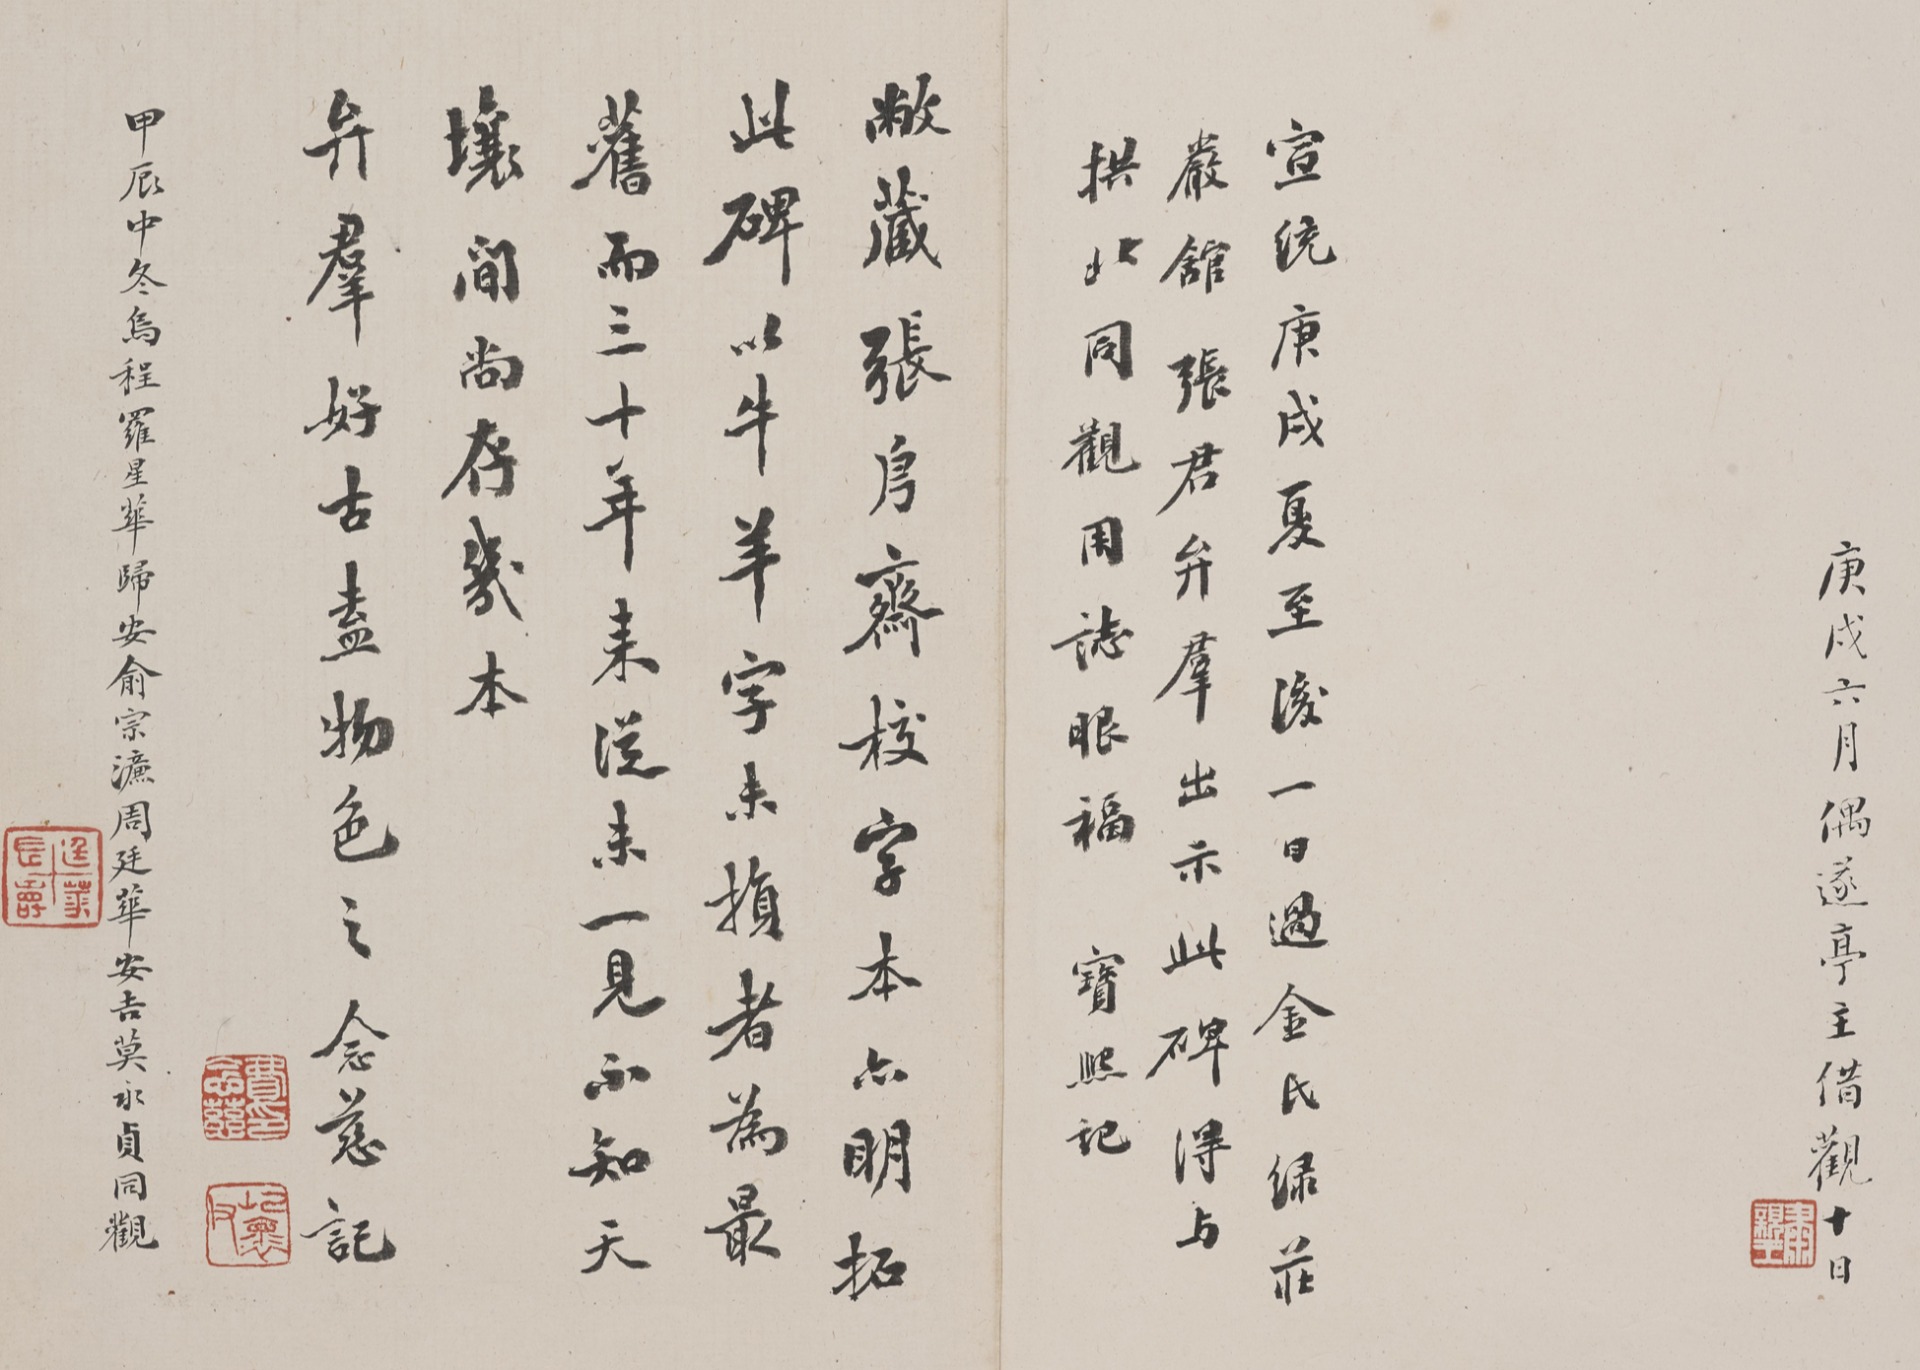 庚戌六月偶遂亭主借觀十日
肅親王
宣統庚戌夏至後一日過金氏緑莊
嚴舘張君弁羣出示此碑得与
拱北同觀用誌眼福 寶熙記
敝藏張叔齋校字本亦明拓
此碑以牛羊字未損者為最
舊而三十年来從未一見不知天
壤間尚存幾本
弁羣好古盍物色之 念慈記
費念慈印
屺懷父
甲辰中冬烏程羅星華歸安俞宗濂周廷華安吉莫永貞同觀